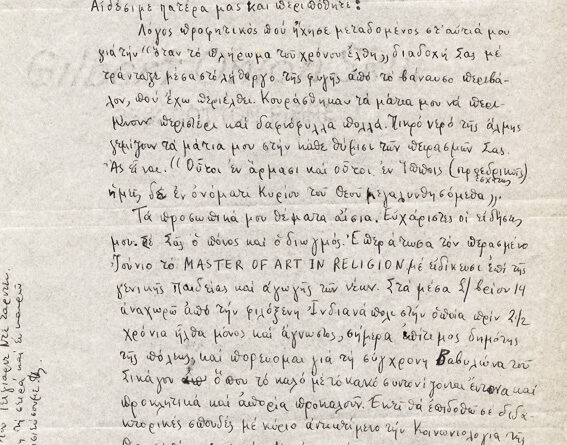 Αἰδέσιμε πατέρα μας καὶ περιπόθητε:
Λόγος προφητικὸς ποὺ ἤχησε μεταδομένος στ' αὐτιά μου
γιὰ τὴν "ὅταν τὸ πλήρωμα τοῦ χρόνου ἔλθῃ,, διαδοχή Σας μὲ
τράνταξε μέσα στὸ λήθαργο τῆς φυγῆς ἀπὸ τὸ βάναυσο περιβά-
λον, ποὺ ἔχω περιέλθει. Κουράσθηκαν τὰ μάτια μου νὰ περι-
μένουν περιστέρι καὶ δαφνόφυλλα πολλά. Πικρὸ νερὸ τῆς ἅλμης
γεμίζουν τὰ μάτια μου στὴν κάθε θύμισι τῶν περασμῶν Σας.
Ἄς εἶναι. "Οὗτοι ἐν ἅρμασι καὶ οὗτοι ἐν ἵπποις (προεδρικοῖς)
ἡμεῖς δὲ ἐν ὀνόματι Κυρίου τοῦ Θεοῦ μεγαλυνθησόμεθα,,.
Τὰ προσωπικά μου θέματα αἴσια. Εὐχάριστες οἱ εἰδήσεις
μου. Σὲ Σᾶς ὁ πόνος καὶ ὁ διωγμός. Ἐπέρασα τώρα τὸν περασμένο
Ἰούνιο τὸ MASTER OF ART IN RELIGION μὲ εἰδίκευσι ἐπὶ τῆς
γενικῆς Παιδείας καὶ ἀγωγῆς τῶν νέων. Στὰ μέσα 14
ἀναχωρῶ ἀπὸ τὴν φιλόξενη Ἰνδιανάπολι στὴν ὁποία πρὶν 2 1/2
χρόνια ἦλθα μόνος καὶ ἄγνωστος, σήμερα ἐπίτιμος δημότης
τῆς πόλεως, καὶ πορεύομαι γιὰ τὴ σύγχρονη Βαβυλώνα τοῦ
Σικάγου ὅπου τὸ καλὸ μὲ τὸ κακὸ συνορίζονται ἔντονα καὶ
προκλητικὰ καὶ ἀπορία προκαλοῦν. Ἐκεῖ θὰ ἐπιδοθῶ σὲ διδα-
κτορικὲς σπουδὲς μὲ κύριο ἀντικείμενο τὴν Κοινωνιολογία τῆς